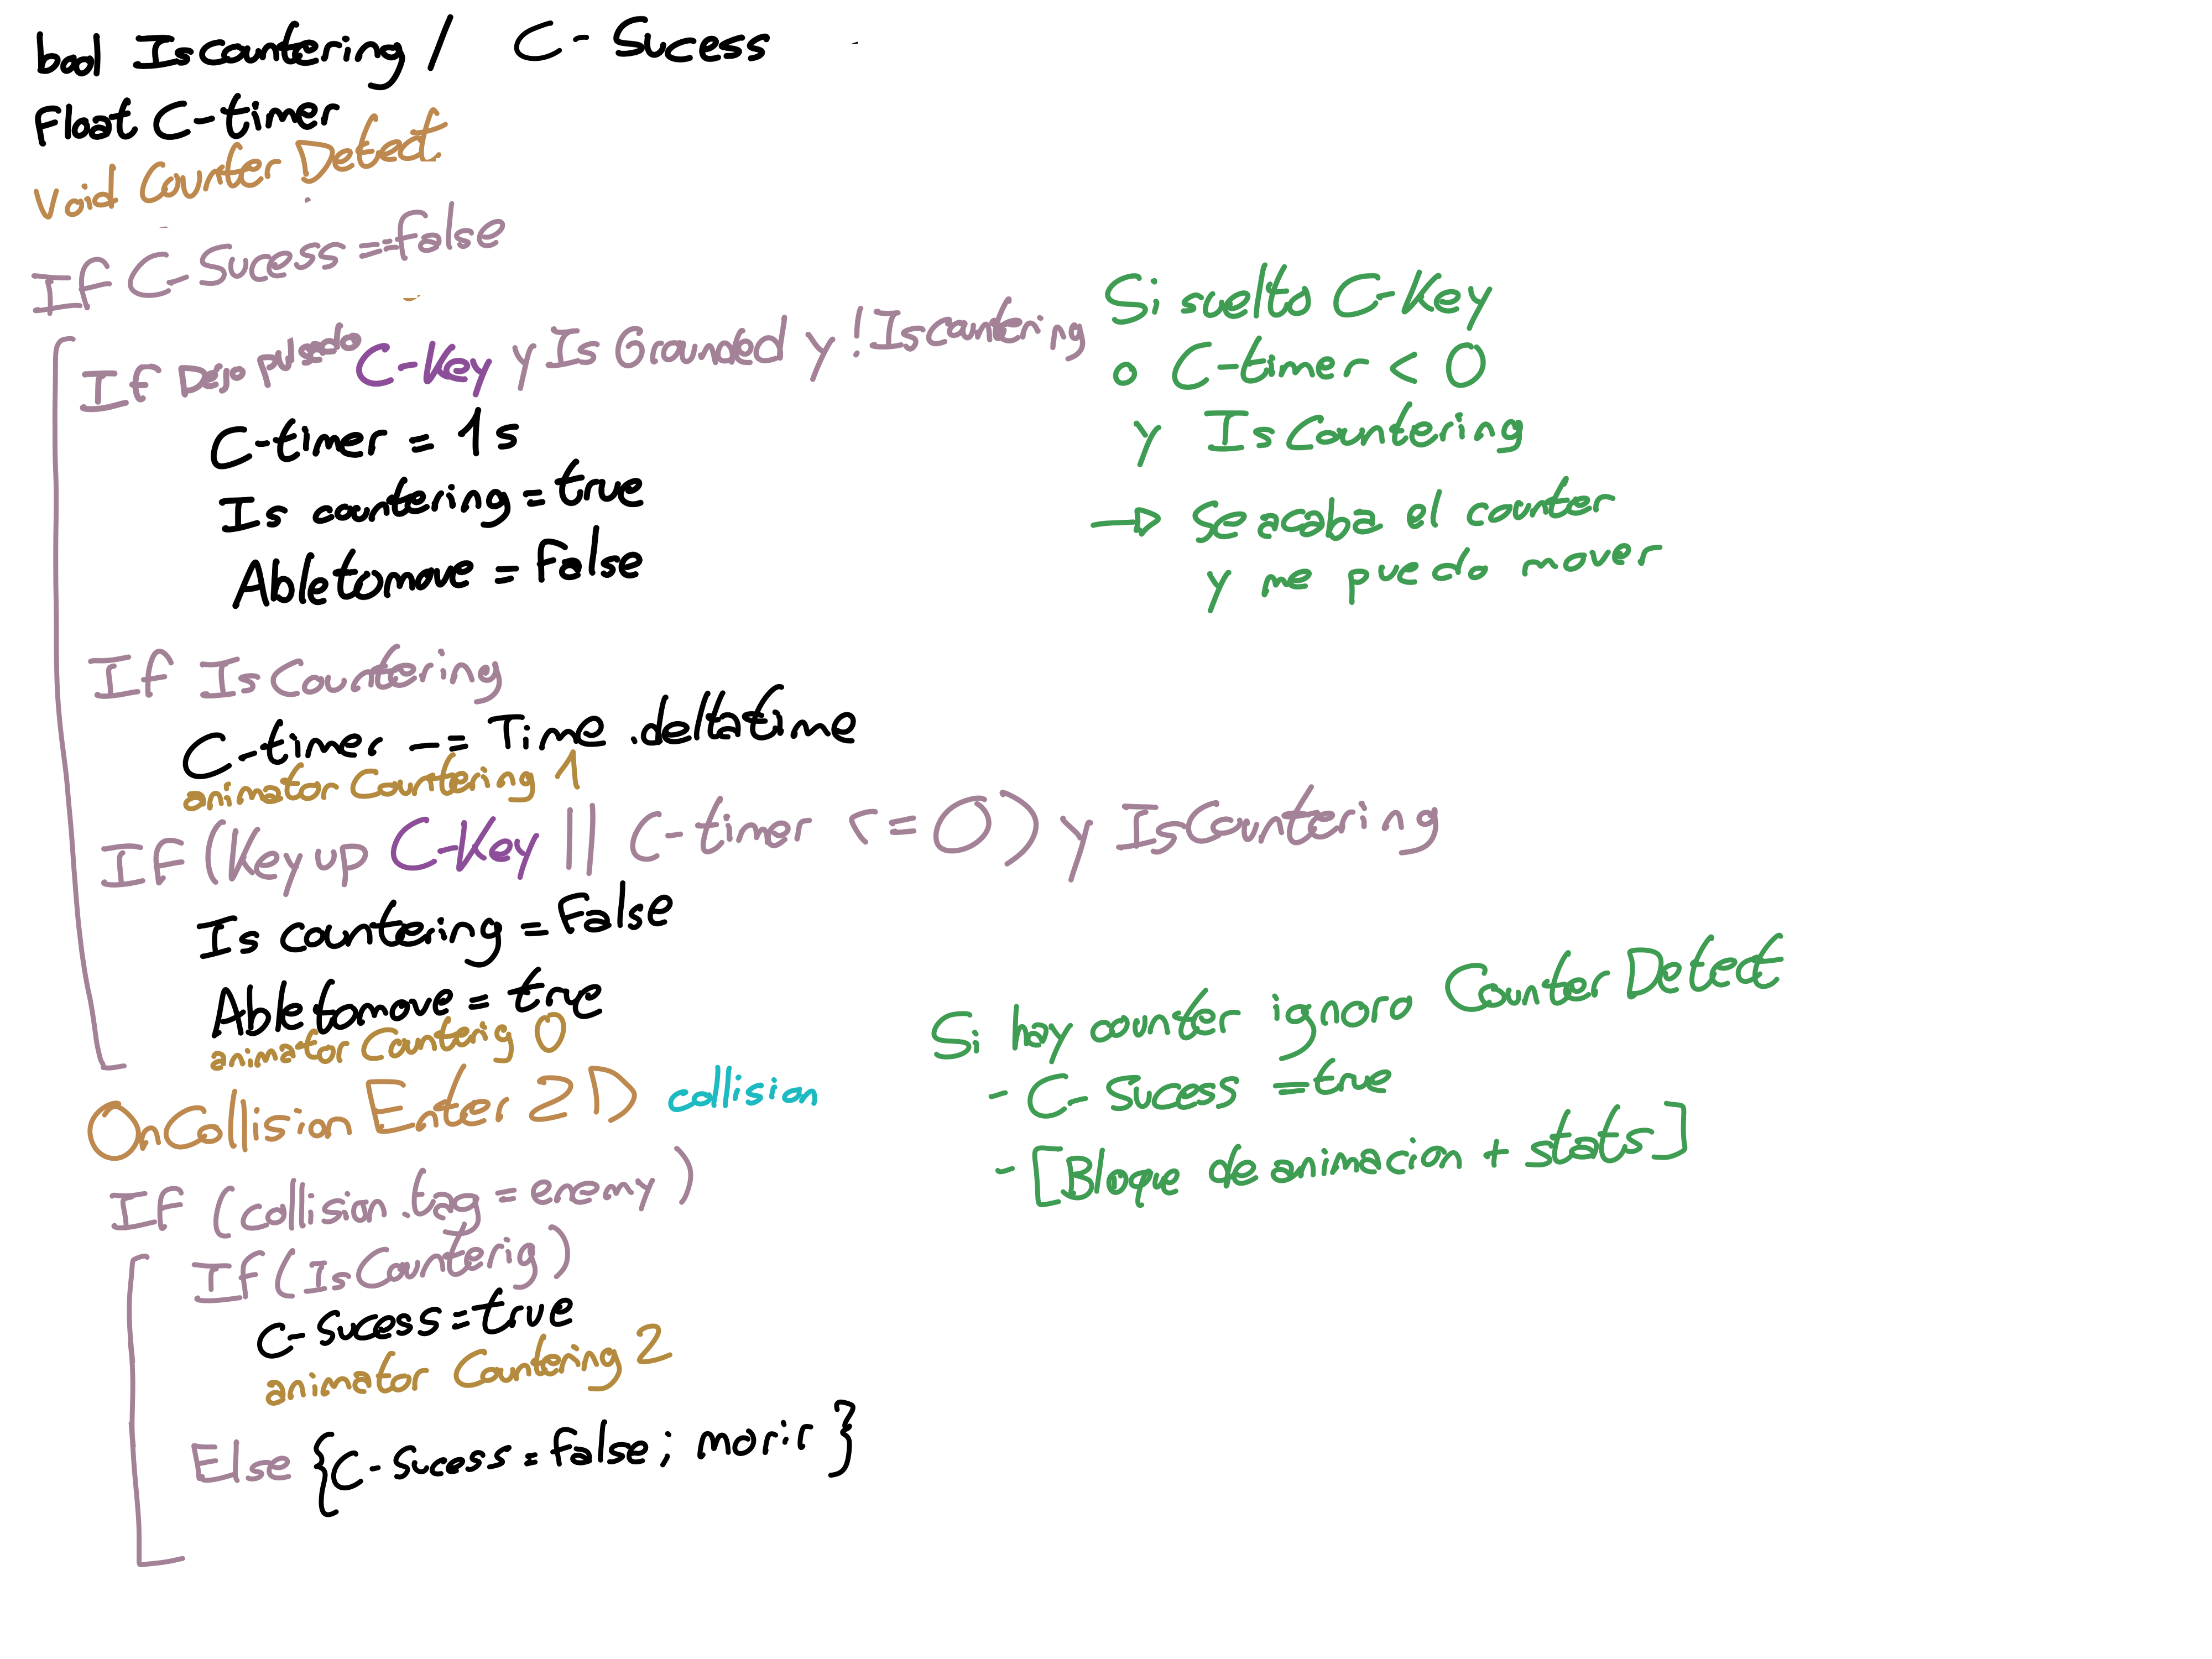 bool IsCountering / C-Sucess
Float C-timer
Void Counter Detect
If C-Sucess==false
If Dejo pulsado C-Key y Is Grounded y !IsCountering
C-timer = 1s
Is countering = true
Abletomove = False
If IsCountering
C-timer -= Time.deltatime
animator Countering 1
If (Key up C-Key || C-timer <=0) y IsCountering
Is countering = False
Abletomove = true
animator Countering 0
OnCollision Enter 2D collision
If (collision.tag = enemy)
If (IsCounterig)
C-sucess=true
animator Countering 2
Else {C-sucess=false; morir}
Si suelto C-Key
o C-timer < 0
y IsCountering
→ Se acaba el counter
y me puedo mover
Si hay counter ignoro Counter Detect
- C-Sucess =true
- [Bloque de animacion + stats]